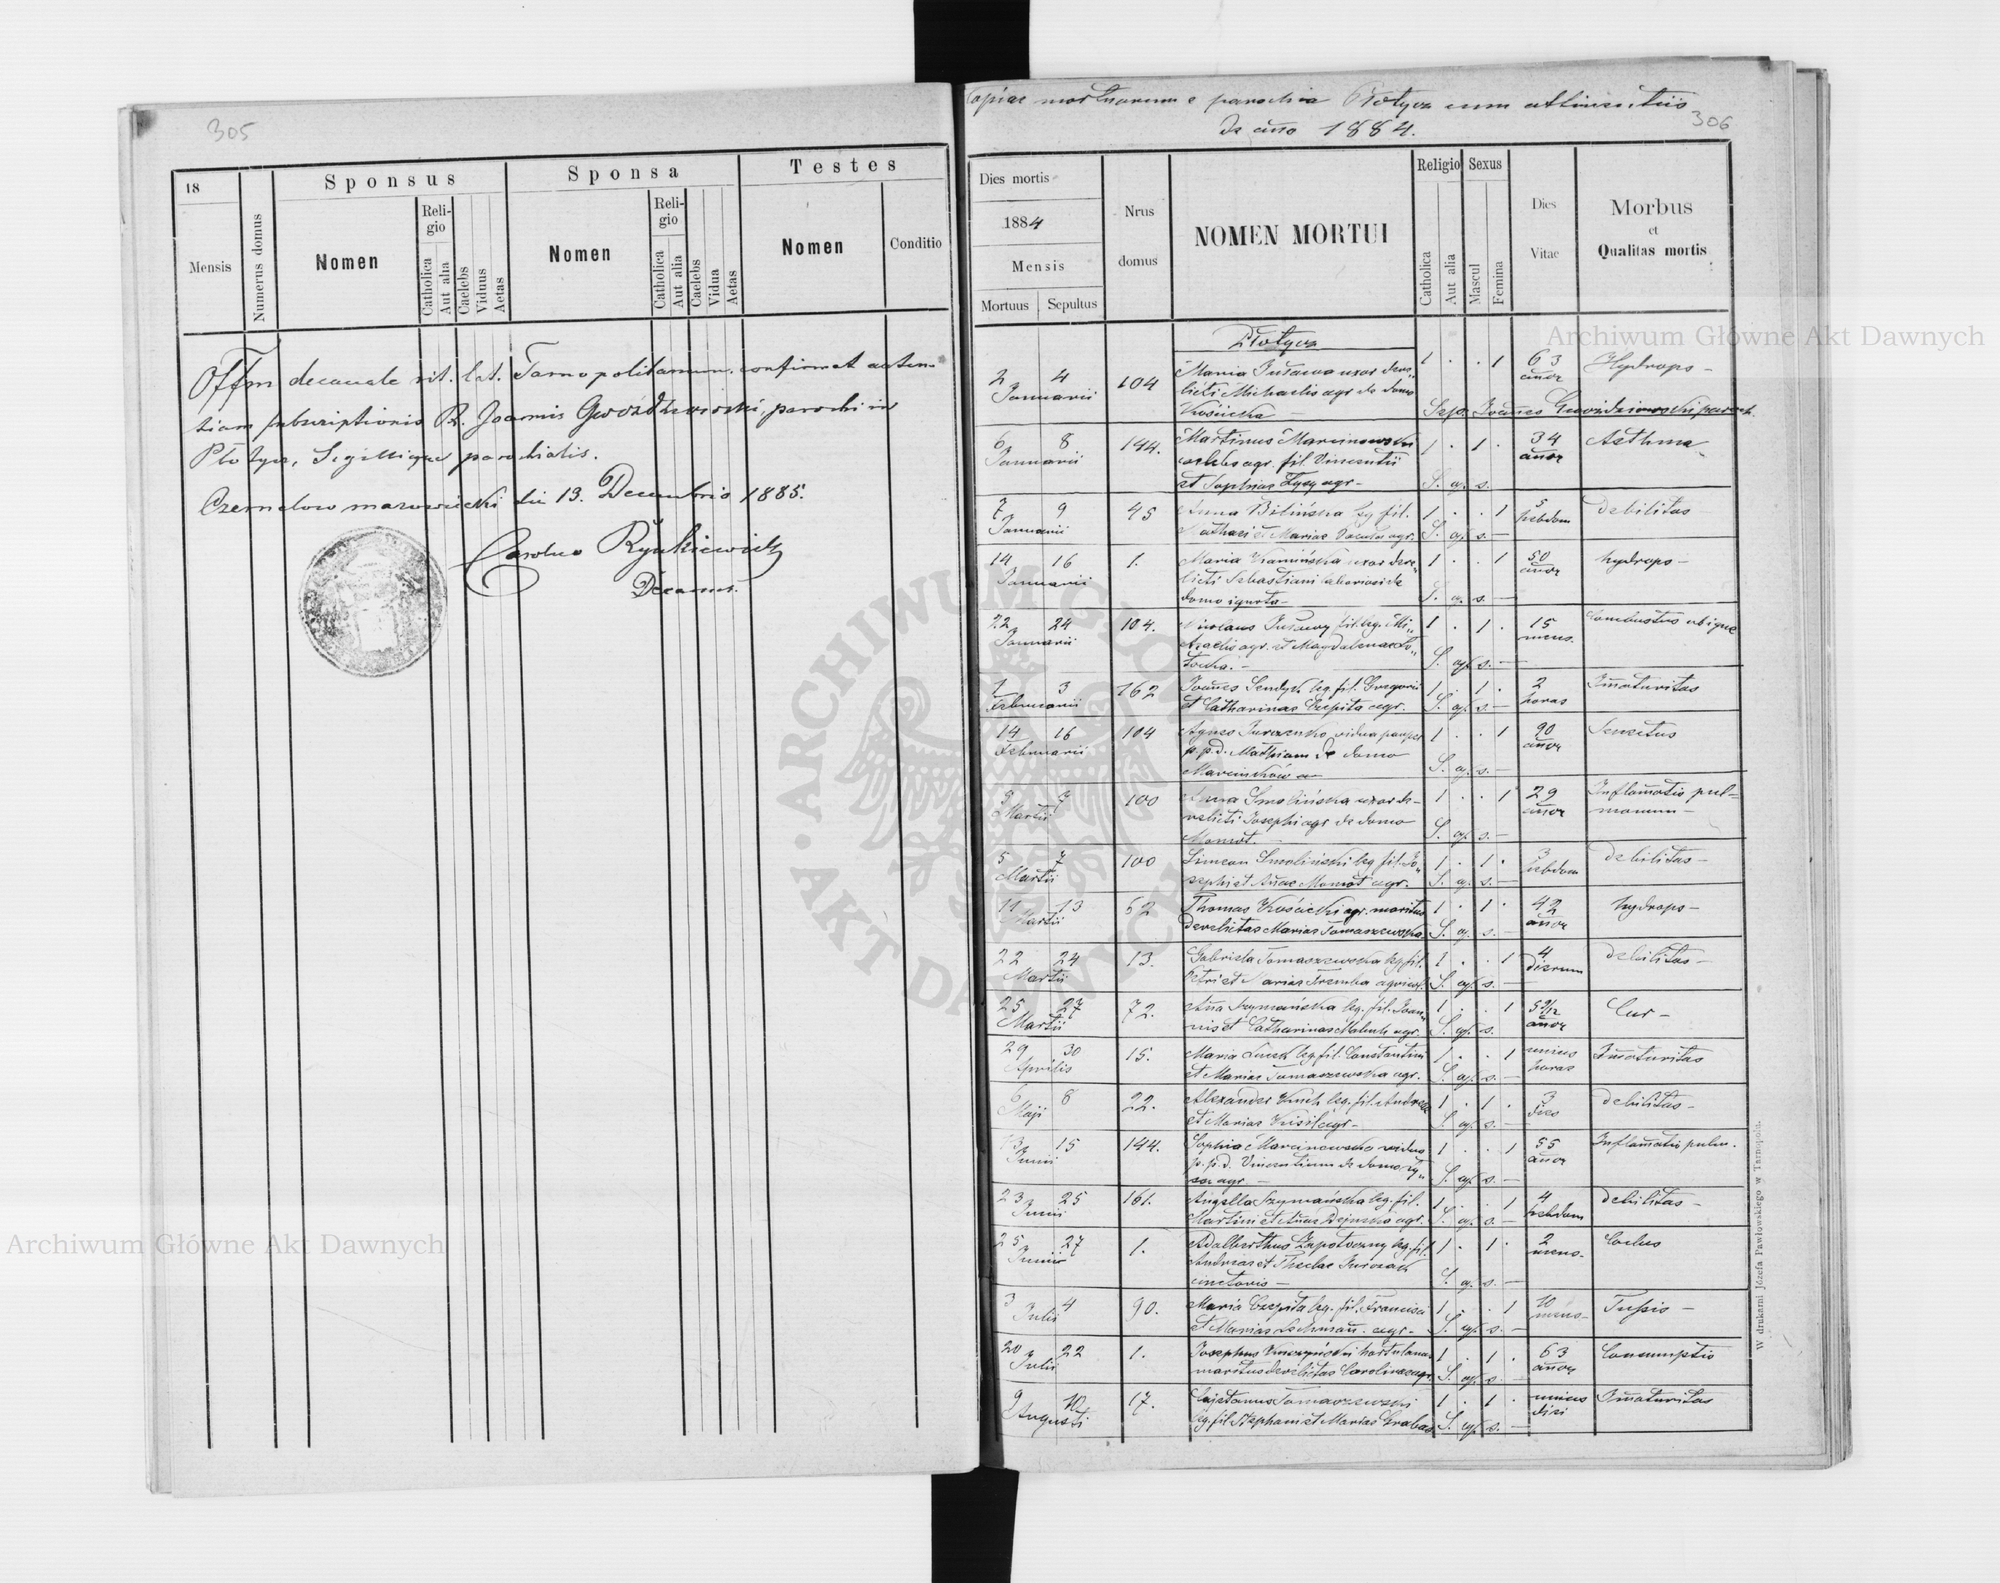 305
18
Mensis
Numerus domus
Sponsus
Nomen
Religio
Catholica
Aut alia
Caelebs
Viduus
Aetas
Sponsa
Nomen
Religio
Catholica
Aut alia
Caelebs
Vidua
Aetas
Testes
Nomen
Conditio
Offm decanale rit. lat. Tarnopolitanum confirmat auten-
tiam subscriptionis R. Joannis Gwoździowski, parochi in
Płotycz, Sigillique parochialis.
Czernelow mazowiecki die 13. Decembris 1885.
Carolus
Decanus.
Copiae mortuorum e parochia Płotycz cum attinentiis
de año 1884.
306
Dies mortis
1884
Mensis
Mortuus Sepultus
Nrus domus
NOMEN MORTUI
Religio
Catholica
Aut alia
Sexus
Mascul
Femina
Dies Vitae
Morbus
et
Qualitas mortis
Płotycz
2 4 Januarii 104 Maria uxor dere-
licti Michaelis agr. de domo
Kościcka 1 . . 1 63 añor Hydrops -
Sep. Joañes Gwoździowski paroch.
6 8 Januarii 144. Martinus Marcinowski
caelebs agr. fil. Vincentii
et Sophiae agr - 1 . 1 . 34 añor Asthma
S. q. s.
7 9 Januarii 45 Anna Bilińska leg. fil.
et Mariae agr. 1 . . 1 5 hebdom debilitas
S. q. s. -
14 16 Januarii 1. Maria Kamińska uxor dere-
licti Sebastiani laboriosi de
domo ignota - 1 . . 1 50 añor hydrops -
S. q. s. -
22 24 Januarii 104. Nicolaus fil. leg. Mi-
chaelis agr. et Magdalenae
1 . 1 . 15 mens. Combustus ab igne
S. q. s. -
1 3 Februarii 162 Joañes Sendyk leg. fil. Gregorii
et Catharinae Czepita agr. 1 . 1 . 2 horas Imaturitas
S. q. s. -
14 16 Februarii 104 Agnes vidua pauper
p. p. d. Mathiam de domo
1 . . 1 90 añor Senectus
S. q. s. -
7 Martii 100 Anna Smolińska uxor de-
relicti Josephi agr de domo
Momot. 1 . . 1 29 añor Inflamatio pul-
monum -
S. q. s. -
5 7 Martii 100 Simeon Smoliński leg. fil. Jo-
sephi et Añae Momot agr. 1 . 1 . 3 hebdom debilitas -
S. q. s. -
11 13 Martii 62 Thomas Kościcki agr. maritus
derelictae Mariae Tomaszewska. 1 . 1 . 42 añor hydrops -
S. q. s.
22 24 Martii 13. Gabriela Tomaszewska leg. fil.
Petri et Mariae Tremba agricol. 1 . . 1 4 dierum debilitas -
S. q. s. -
25 27 Martii 72. Aña Szymańska leg. fil. Joan-
nis et Catharinae agr. 1 . . 1 5 9/12 añor
S. q. s.
29 30 Aprilis 15. Maria leg. fil. Constantini
et Mariae Tomaszewska agr. 1 . . 1 unius horas Imaturitas
S. q. s. -
6 8 Maji 22. Alexander leg. fil. Andreae
et Mariae agr - 1 . 1 . 3 dies debilitas -
S. q. s. -
13 15 Junii 144. Sophia Marcinowska vidua
p. p. d. Vincentium de domo
agr. - 1 . . 1 55 añor Inflamatio pulm.
S. q. s. -
23 25 Junii 161. Angella Szymańska leg. fil.
Martini et Añae agr. 1 . . 1 4 hebdom debilitas -
S. q. s. -
25 27 Junii 1. Adalberthus Zapotoczny leg. fil.
Andreae et Theclae
1 . 1 . 2 mens.
S. q. s. -
3 4 Julii 90. Maria Czepita leg. fil. Francisci
et Mariae Lehman. agr - 1 . . 1 10 mens - Tussis -
S. q. s. -
20 22 Julii 1. Josephus hortulanus
maritus derelictae Carolinae agr. 1 . 1 . 63 añor Consumptio
S. q. s. -
9 10 Augusti 17. Cajetanus Tomaszewski
leg. fil. Stephani et Mariae Grabas 1 . 1 . unius diei Imaturitas
S. q. s. -
W drukarni Józefa Pawłowskiego w Tarnopolu.
Archiwum Główne Akt Dawnych
Archiwum Główne Akt Dawnych
ARCHIWUM GŁÓWNE AKT DAWNYCH